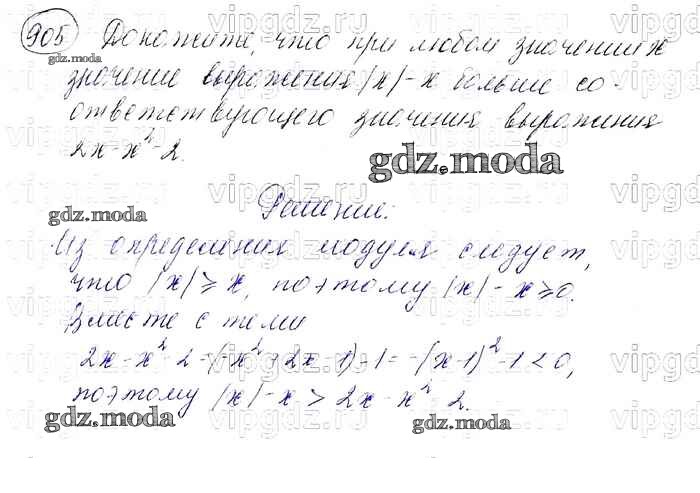 905 Докажите, что при любом значении x
gdz.moda
значение выражения |x|-x больше со-
ответствующего значения выражения
2x-x²-2.
gdz.moda
Решение:
gdz.moda
Из определения модуля следует,
что |x|⩾x, поэтому |x|-x⩾0.
Вместе с тем
2x-x²-2=(-x²+2x-1)-1=-(x-1)²-1<0,
поэтому |x|-x>2x-x²-2.
gdz.moda
gdz.moda
vipgdz.ru